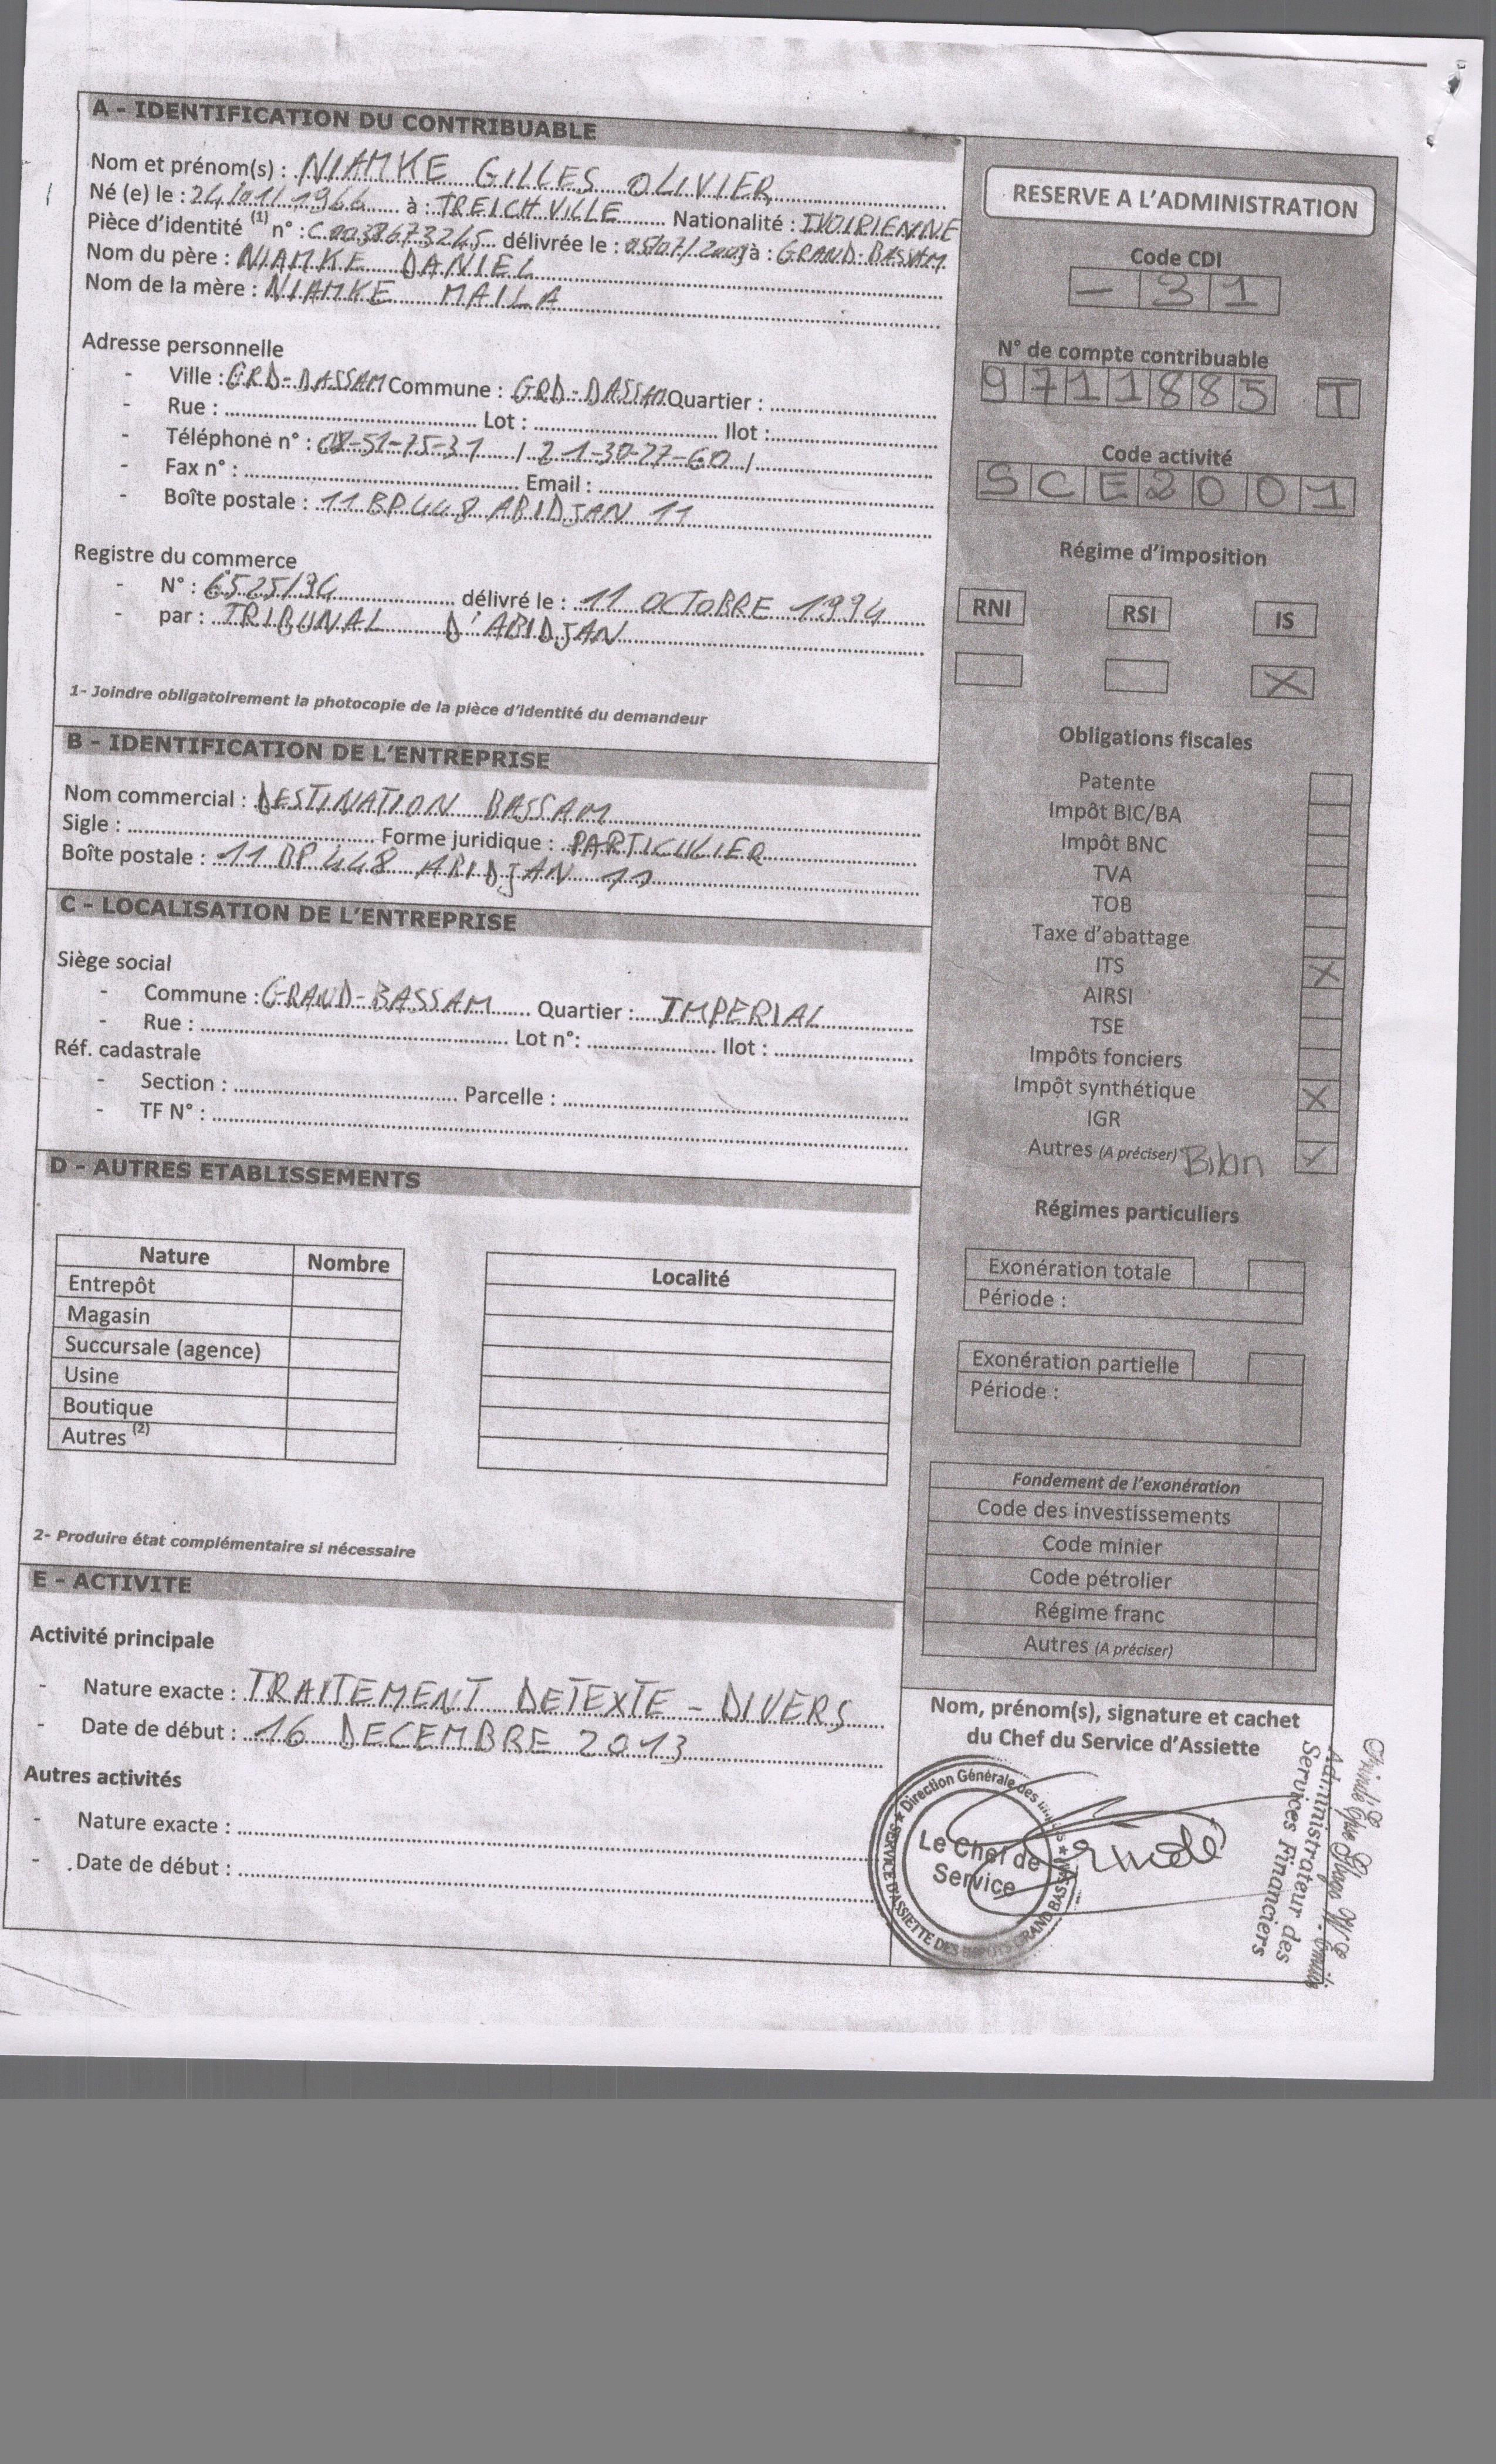 A - IDENTIFICATION DU CONTRIBUABLE
Nom et prénom(s) : NIAMKE GILLES OLIVIER
Né (e) le : 24/01/1966 à : TREICHVILLE Nationalité : IVOIRIENNE
Pièce d'identité (1) n° : C0038673245 délivrée le : à : GRAND-BASSAM
Nom du père : NIAMKE DANIEL
Nom de la mère : NIAMKE MAILA
Adresse personnelle
- Ville : GRD-BASSAM Commune : GRD-BASSAM Quartier :
- Rue : Lot : Ilot :
- Téléphone n° : 08-51-75-31 / 21-30-27-60 /
- Fax n° : Email :
- Boîte postale : 11 BP 448 ABIDJAN 11
Registre du commerce
- N° : délivré le : 11 OCTOBRE 1994
- par : TRIBUNAL D'ABIDJAN
1- Joindre obligatoirement la photocopie de la pièce d'identité du demandeur
B - IDENTIFICATION DE L'ENTREPRISE
Nom commercial : DESTINATION BASSAM
Sigle : Forme juridique : PARTICULIER
Boîte postale : 11 BP 448 ABIDJAN 11
C - LOCALISATION DE L'ENTREPRISE
Siège social
- Commune : GRAND-BASSAM Quartier : IMPERIAL
- Rue : Lot n°: Ilot :
Réf. cadastrale
- Section : Parcelle :
- TF N° :
D - AUTRES ETABLISSEMENTS
Nature Nombre Localité
Entrepôt
Magasin
Succursale (agence)
Usine
Boutique
Autres (2)
2- Produire état complémentaire si nécessaire
E - ACTIVITE
Activité principale
- Nature exacte : TRAITEMENT DE TEXTE - DIVERS
- Date de début : 16 DECEMBRE 2013
Autres activités
- Nature exacte :
- Date de début :
RESERVE A L'ADMINISTRATION
Code CDI
- 3 1
N° de compte contribuable
9 7 1 1 8 8 5 T
Code activité
S C E 2 0 0 1
Régime d'imposition
RNI RSI IS
X
Obligations fiscales
Patente
Impôt BIC/BA
Impôt BNC
TVA
TOB
Taxe d'abattage
ITS X
AIRSI
TSE
Impôts fonciers
Impôt synthétique X
IGR
Autres (A préciser) Bilan X
Régimes particuliers
Exonération totale
Période :
Exonération partielle
Période :
Fondement de l'exonération
Code des investissements
Code minier
Code pétrolier
Régime franc
Autres (A préciser)
Nom, prénom(s), signature et cachet
du Chef du Service d'Assiette
Direction Générale des Impôts
Le Chef de
Service
SERVICE D'ASSIETTE DES IMPOTS GRAND BASSAM
Administrateur des
Services Financiers